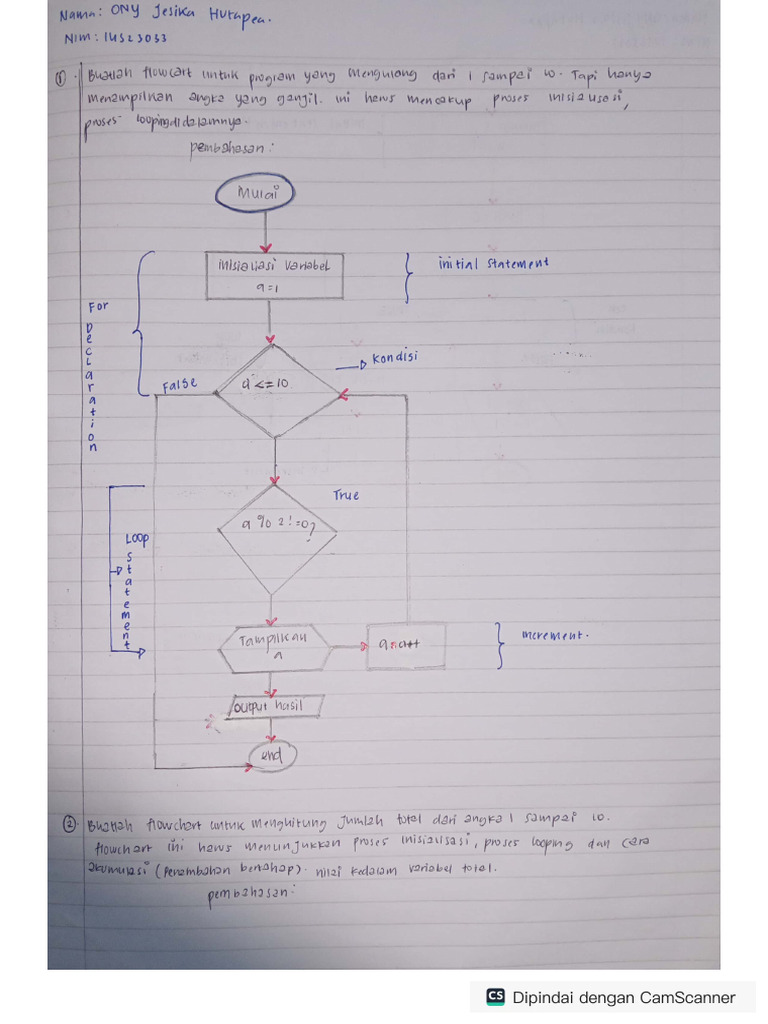 Nama: ONY Jesika Hutapea.
NIM: 14S23033
① Buatlah flowcart untuk program yang mengulang dari 1 sampai 10. Tapi hanya
menampilkan angka yang ganjil. ini harus mencakup proses inisialisasi,
proses looping di dalamnya.
pembahasan:
Mulai
inisialiasi variabel
a=1
initial statement
For
Declaration
Kondisi
a <= 10
False
True
a % 2 != 0?
Loop
statement
Tampilkan
a
a=a++
increment.
output hasil
end
② Buatlah flowchart untuk menghitung jumlah total dari angka 1 sampai 10.
flowchart ini harus menunjukkan proses inisialisasi, proses looping dan cara
akumulasi (Penambahan bertahap). nilai kedalam variabel total.
pembahasan:
CS Dipindai dengan CamScanner